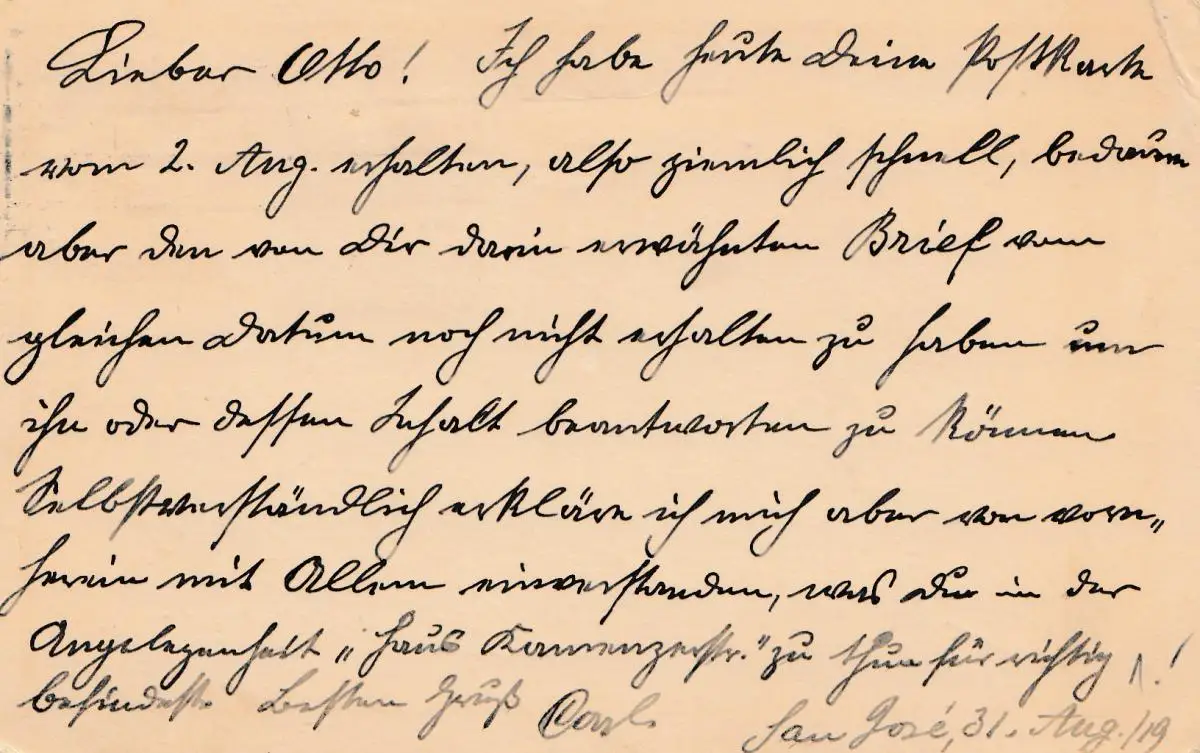 Lieber Otto! Ich habe heute Deine Postkarte
vom 2. Aug. erhalten, also ziemlich schnell, bedaure
aber den von Dir darin erwähnten Brief vom
gleichen Datum noch nicht erhalten zu haben um
ihn oder dessen Inhalt beantworten zu können
Selbstverständlich erkläre ich mich aber von vorn„
herein mit Allem einverstanden, was Du in der
Angelegenheit „Haus Kamenzerstr.“ zu thun für richtig
befindest. Besten Gruß Carl. !
San José, 31. Aug./19